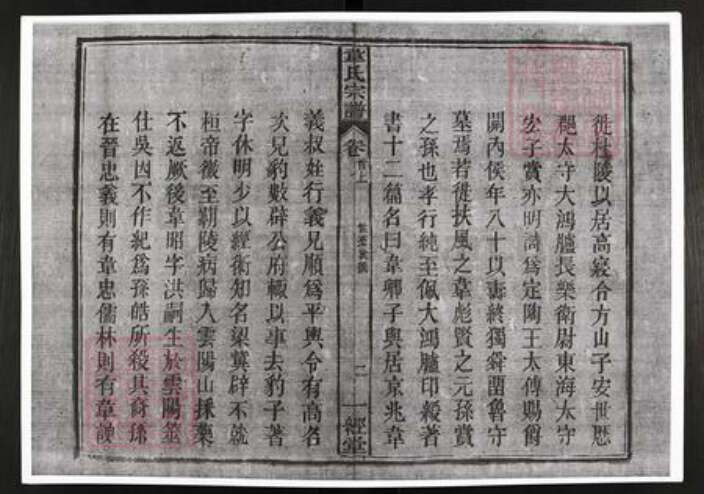 徙杜陵以居高寢令方山子安世歷
太守大鴻臚長樂衛尉東海太守
宏子賞亦明詩爲定陶王太傅賜爵
關內侯年八十以壽終獨舜留魯守
墓焉若徙扶風之韋彪賢之元孫賞
之孫也孝行純至佩大鴻臚印綬著
書十二篇名曰韋卿子與居京兆韋
韋氏宗譜
卷首上
二
一經堂
義叔姪行義兄順爲平輿令有高名
次兄豹數辟公府輒以事去豹子著
字休明少以經術知名梁冀辟不就
桓帝徵至霸陵病歸入雲陽山採藥
不返厥後韋昭字洪嗣生於雲陽筮
仕吳因不作紀爲孫皓所殺其裔孫
在晉忠義則有韋忠儒林則有韋謏